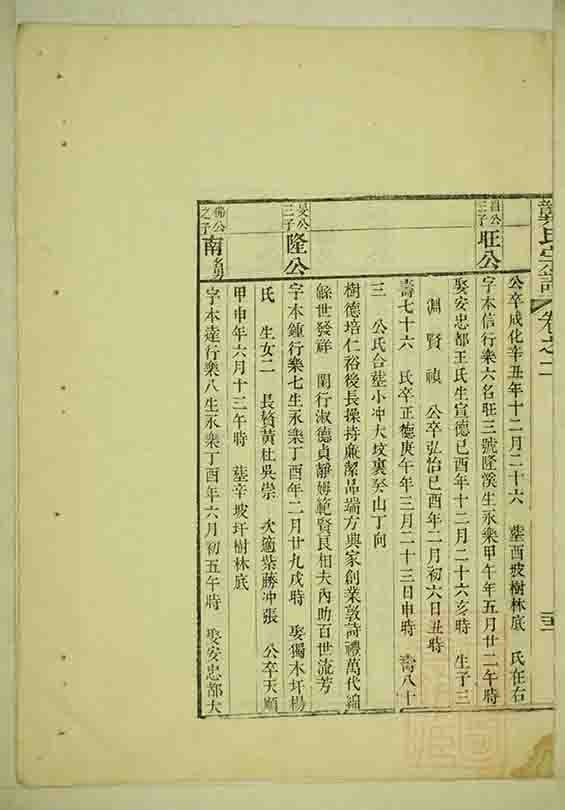 龔氏宗譜 卷之二
公卒成化辛丑年十二月二十六 塟酉坡樹林底 氏在右
昌公三子 旺公
字本信行樂六名旺三號隆溪生永樂甲午年五月廿二午時
娶安忠都王氏生宣德己酉年十二月二十六亥時 生子三
淵 賢 禎 公卒弘治己酉年二月初六日丑時
壽七十六 氏卒正德庚午年三月二十三日申時 壽八十
三 公氏合塟小冲大坟裏癸山丁向
樹德培仁裕後長操持廉潔品端方興家創業敦詩禮萬代綿
緜世發祥 閫行淑德貞靜姆範賢良相夫內助百世流芳
旻公三子 隆公
字本鍾行樂七生永樂丁酉年二月廿九戌時 娶獨木圩楊
氏 生女二 長贅黃杜吳崇 次適紫藤冲張 公卒天順
甲申年六月十三午時 塟辛坡圩樹林底
公之子 南
字本達行樂八生永樂丁酉年六月初五午時 娶安忠都大